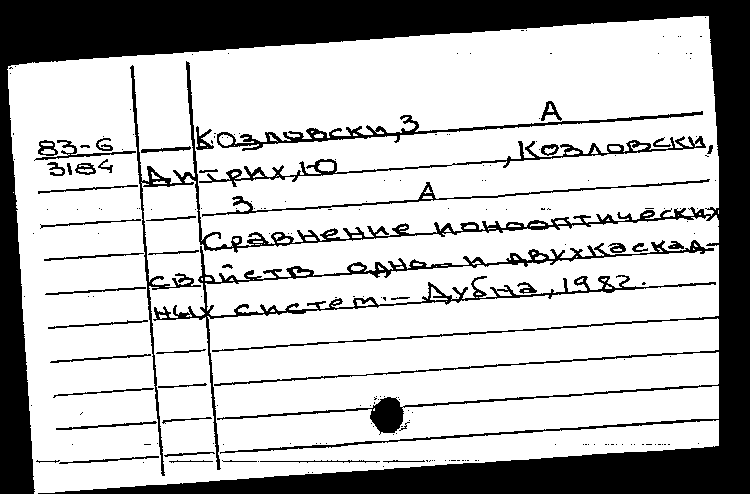 83-6
3184
Козловски, З А
Дитрих, Ю , Козловски,
З А
Сравнение ионооптических
свойств одно- и двухкаскад-
ных систем. – Дубна, 1982.